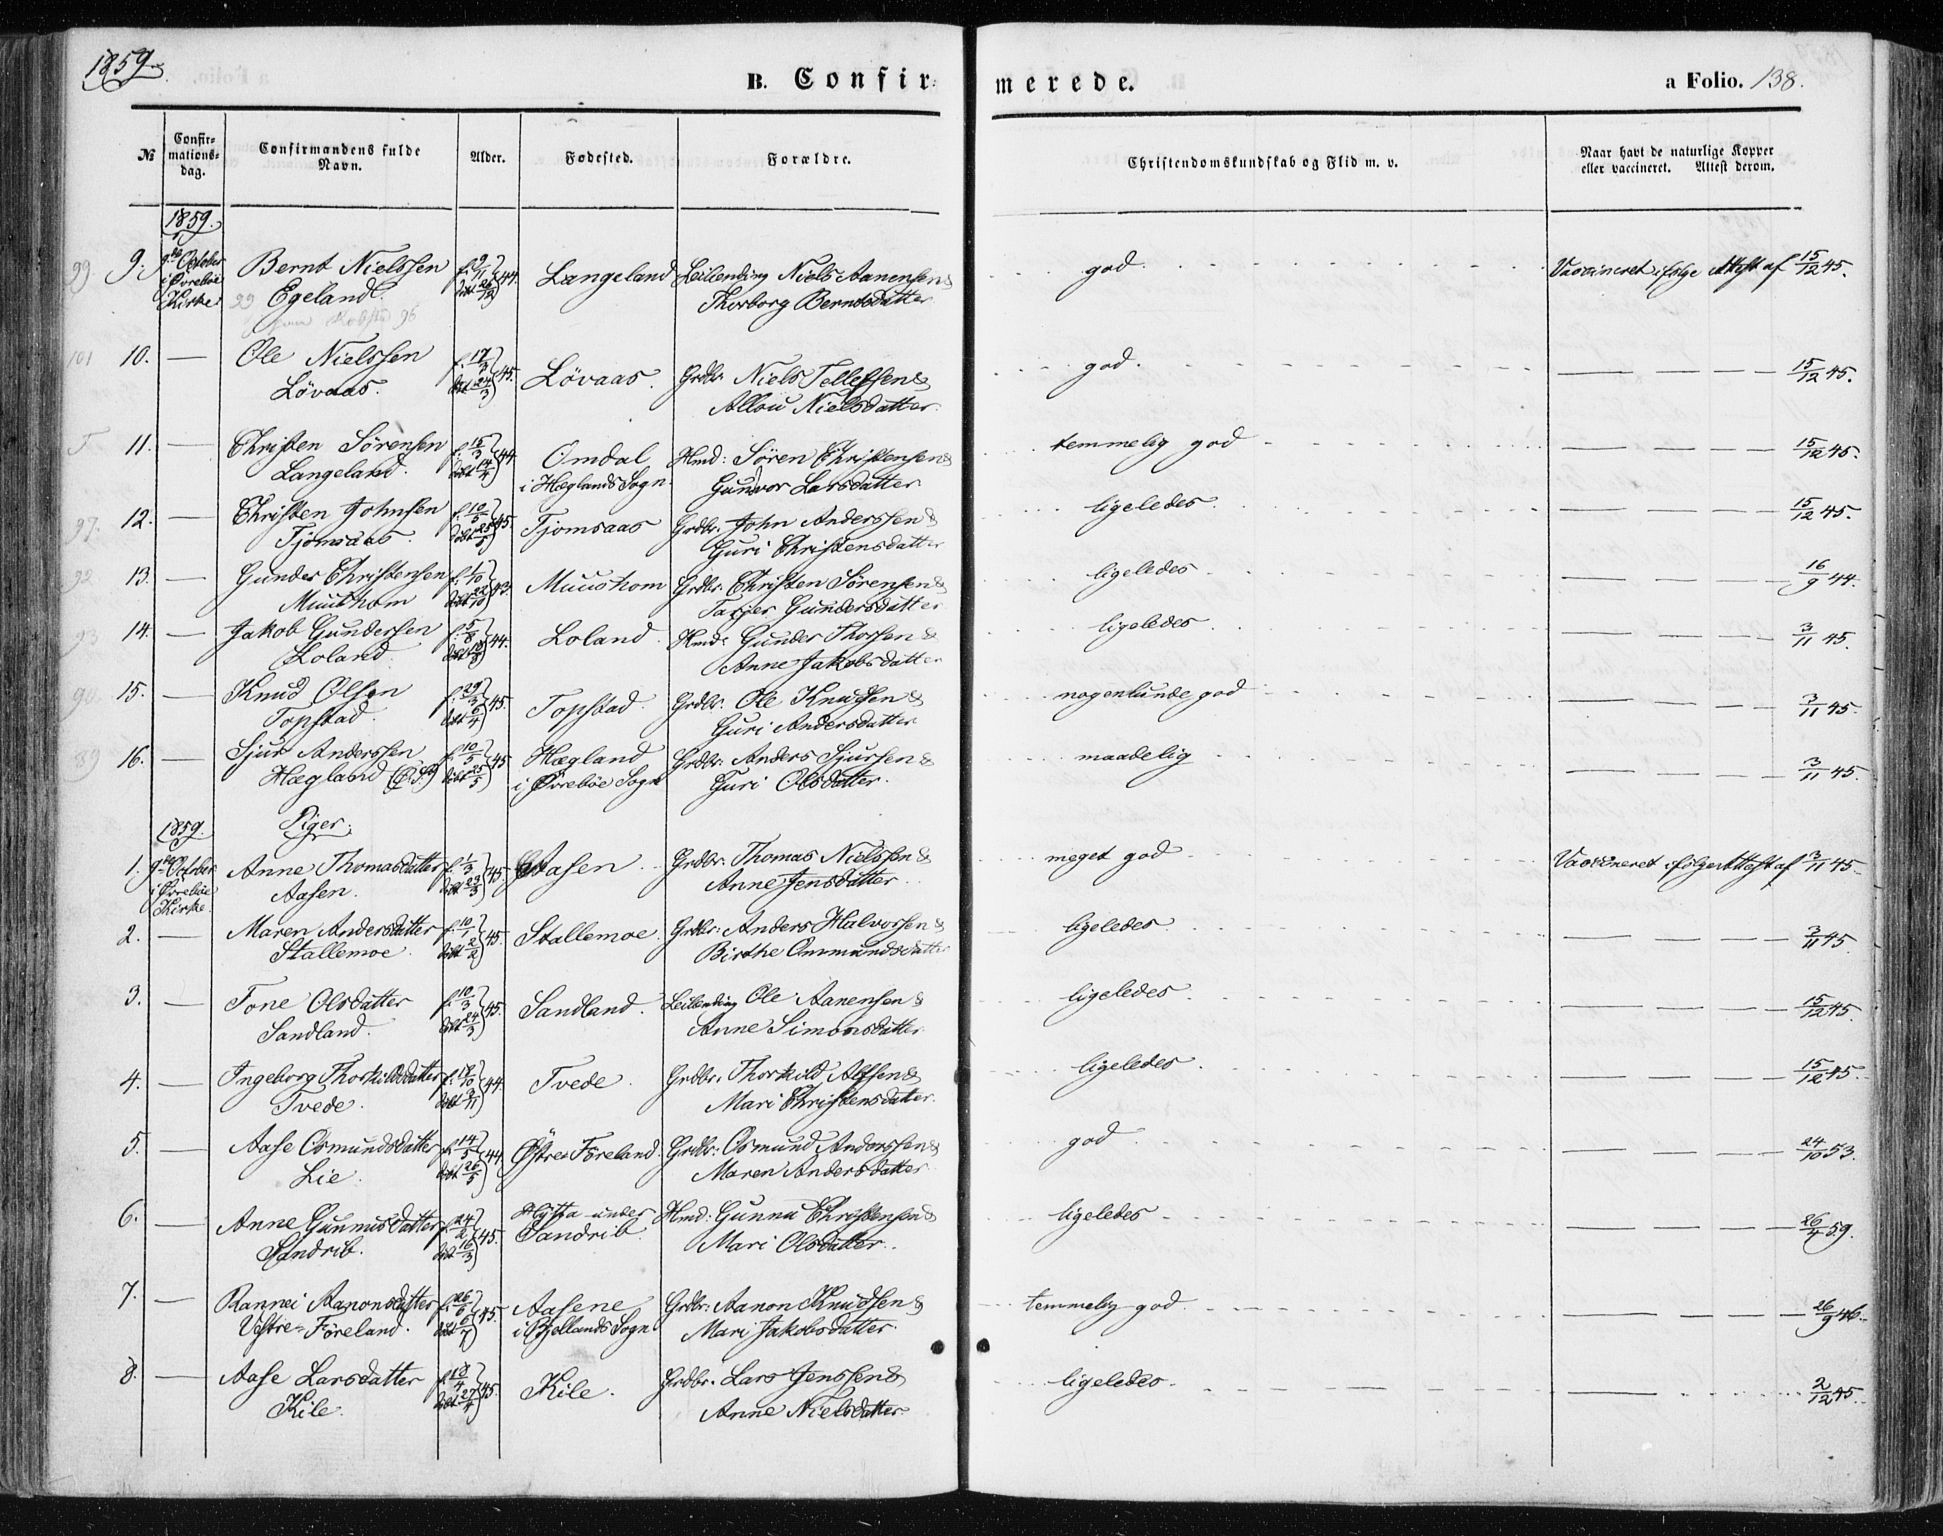 1859.
B. Confirmerede.
a Folio. 138.
№
Confirmations-dag.
Confirmandens fulde Navn.
Alder.
Fødested.
Forældre.
Christendomskundskab og Flid m. v.
Naar havt de naturlige Kopper eller vaccineret. Attest derom.
1859.
99 9. 9de October i Øvrebøe Kirke Bernt Nielssen Egeland. f. 9/11 døbt 26/12 44. Langeland Leilending Niels Aanensen & Thorborg Berntsdatter god. Vaccineret ifølge Attest af 15/12 45.
101 10. — Ole Nielssen Lövaas. f. 17/3 døbt 24/3 45. Lövaas. Grdbr. Niels Tellefsen & Nielsdatter. god. — 15/12 45.
11. — Christen Sörensen Langeland. f. 15/3 døbt 14/4 44. Omdal i Hæglands Sogn Hmd: Sören Christensen & Gunvor Larsdatter temmelig god — 15/12 45.
97. 12. — Christen Johnsen Tjomsaas. f. 10/5 døbt 25/5 45. Tjomsaas Grdbr. John Anderssen & Guri Christensdatter ligeledes — 15/12 45.
92 13. — Gunder Christensen Muushom f. 1/10 døbt 22/10 43. Muushom Grdbr. Christen Sörensen & Tarjer Gundersdatter ligeledes — 16/9 44.
93 14. — Jakob Gundersen Loland. f. 5/8 døbt 18/8 44. Loland. Hmd: Gunder Thorsen & Anne Jakobsdatter ligeledes — 3/11 45.
90 15. — Knud Olsen Topstad. f. 29/3 døbt 6/4 45. Topstad. Grdbr. Ole Knudsen & Guri Andersdatter nogenlunde god — 3/11 45.
89 16. — Sjur Anderssen Hægland f. 10/5 døbt 25/5 45 Hægland i Øvrebøe Sogn Grdbr. Anders Sjursen & Guri Olsdatter. maadelig — 3/11 45.
1859. Piger.
1. 9de October i Øvrebøe Kirke. Anne Thomasdatter Aasen. f. 1/3 døbt 23/3 45. Aasen. Grdbr: Thomas Nielssen & Anne Jensdatter. meget god Vaccineret ifølge Attest af 3/11 45.
2. — Maren Andersdatter Stallemoe. f. 10/1 døbt 2/2 45. Stallemoe. Grdbr: Anders Halvorsen & Birthe Ommundsdatter ligeledes — 3/11 45.
3. — Tone Olsdatter Sandland. f. 10/3 døbt 24/3 45. Sandland. Leilending Ole Aanensen & Anne Simonsdatter ligeledes — 15/12 45.
4. — Ingeborg Thorkildsdatter Tvede. f. 17/10 døbt 3/11 44. Tvede. Grdbr. Thorkild Alfsen & Mari Christensdatter. ligeledes — 15/12 45.
5. — Aase Osmundsdatter Lie. f. 14/5 døbt 26/5 44. Østre Föreland. Grdbr: Osmund Anderssen & Maren Andersdatter god — 24/10 53.
6. — Anne Gunnusdatter Sandrib. f. 24/2 døbt 16/3 45. Hytta under Sandrib. Hmd: Gunnu Christensen & Mari Olsdatter. ligeledes — 26/4 59.
7. — Rannei Aanonsdatter Vestre-Föreland. f. 26/6 døbt 6/7 45. Aasene i Bjellands Sogn Grdbr: Aanon Knudsen & Mari Jakobsdatter. temmelig god — 26/9 46.
8. — Aase Larsdatter Kile. f. 18/4 døbt 27/4 45. Kile. Grdbr. Lars Jenssen & Anne Nielsdatter. ligeledes. — 2/12 45.